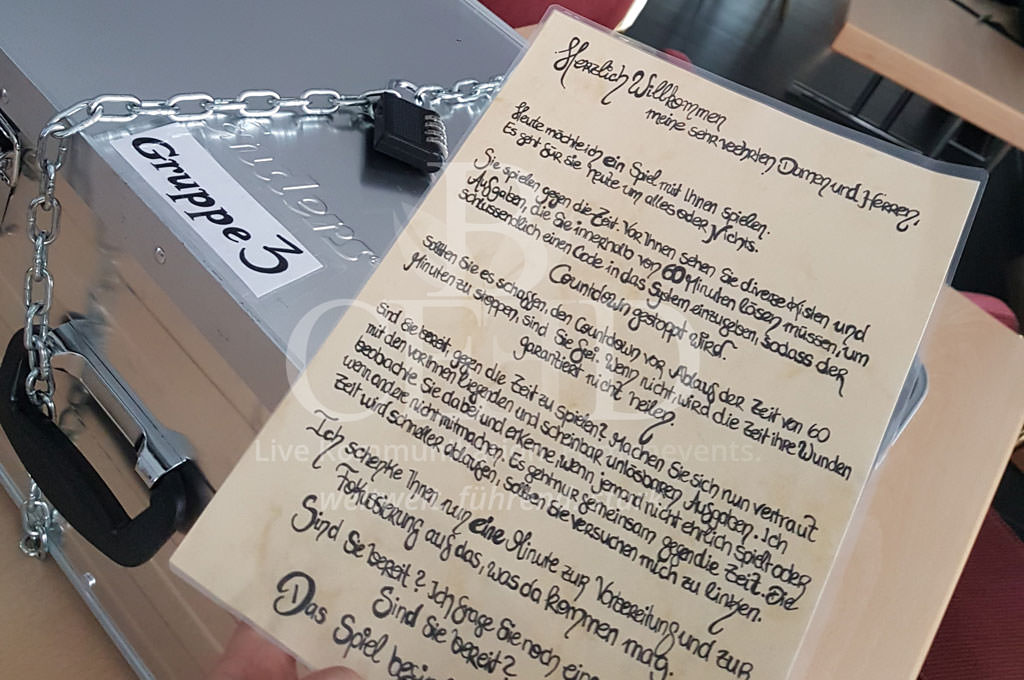 Gruppe 3
Herzlich Willkommen
meine sehr veehrten Damen und Herren,
Heute möchte ich ein Spiel mit Ihnen spielen.
Es geht für sie heute um alles oder Nichts.
Sie spielen gegen die Zeit. Vor Ihnen sehen Sie diverse Kisten und
Aufgaben, die Sie innerhalb von 60 Minuten lösen müssen, um
schlussendlich einen Code in das System einzugeben, sodass der
Countdown gestoppt wird.
Sollten Sie es schaffen, den Countdown vor Ablauf der Zeit von 60
Minuten zu stoppen, sind Sie frei. Wenn nicht, wird die Zeit ihre Wunden
garantiert nicht heilen.
Sind Sie bereit gegen die Zeit zu spielen? Machen Sie sich nun vertraut
mit den vor Ihnen liegenden und scheinbar unlösbaren Aufgaben. Ich
beobachte Sie dabei und erkenne, wenn jemand nicht ehrlich spielt oder
wenn andere nicht mitmachen. Es geht nur gemeinsam gegen die Zeit. Die
Zeit wird schneller ablaufen, sollten Sie versuchen mich zu linken.
Ich schenke Ihnen nun eine Minute zur Vorbereitung und zur
Fokussierung auf das, was da kommen mag.
Sind Sie bereit? Ich frage Sie noch ein
Sind Sie bereit?
Das Spiel